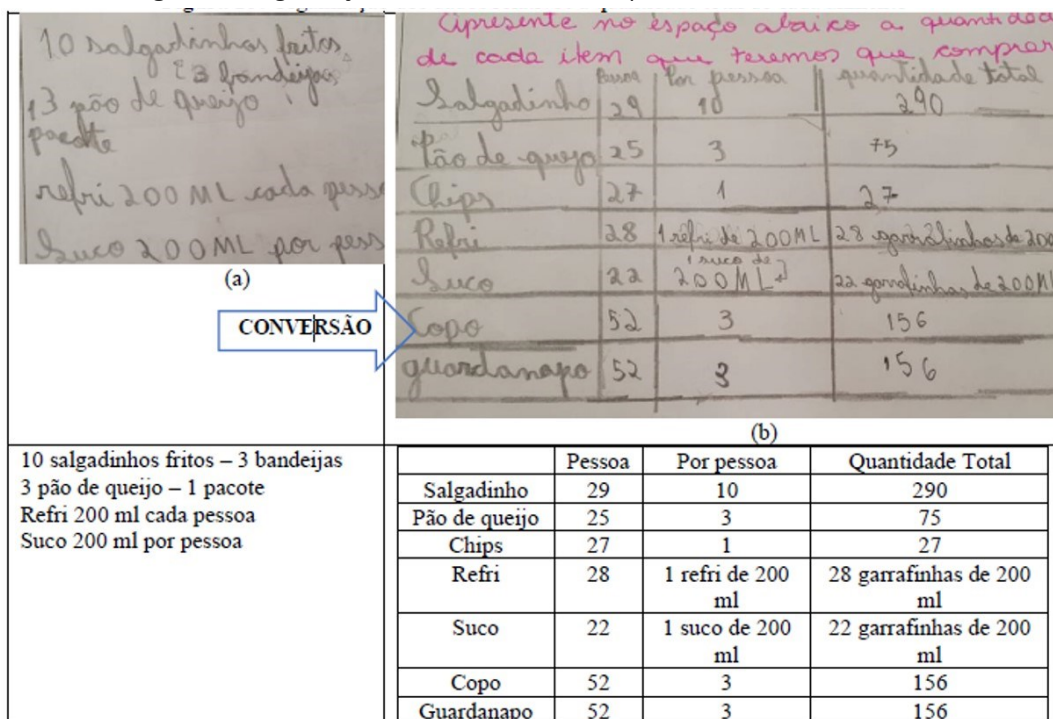 10 salgadinhos fritos,
3 bandeijas
3 pão de queijo 1
pacote
refri 200 ML cada pesso
Suco 200 ML por pess
(a)
CONVERSÃO
Apresente no espaço abaixo a quantidad
de cada item que teremos que comprar
Por pessoa quantidade total
Salgadinho 29 10 290
Pão de queijo 25 3 75
Chips 27 1 27
Refri 28 1 refri de 200ML 28 garrafinhas de 200
Suco 22 1 suco de 200ML 22 garrafinhas de 200ML
Copo 52 3 156
guardanapo 52 3 156
(b)
10 salgadinhos fritos – 3 bandeijas
3 pão de queijo – 1 pacote
Refri 200 ml cada pessoa
Suco 200 ml por pessoa
Pessoa Por pessoa Quantidade Total
Salgadinho 29 10 290
Pão de queijo 25 3 75
Chips 27 1 27
Refri 28 1 refri de 200 ml 28 garrafinhas de 200 ml
Suco 22 1 suco de 200 ml 22 garrafinhas de 200 ml
Copo 52 3 156
Guardanapo 52 3 156